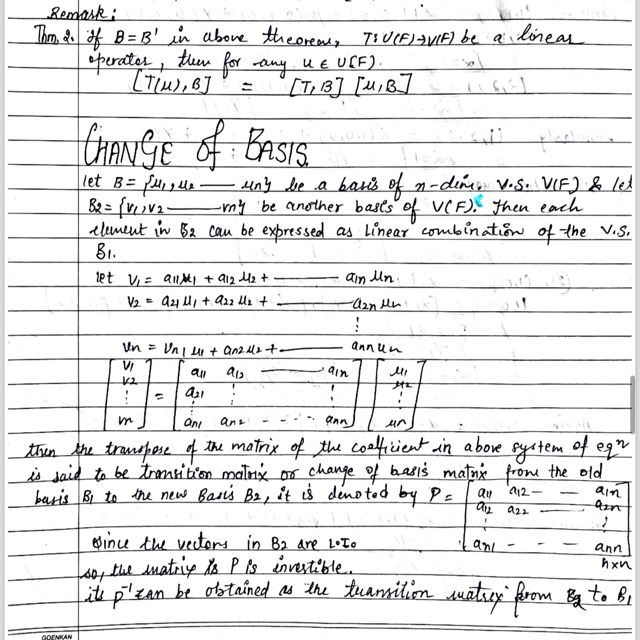 Remark:
Thm 2. If B = B' in above theorem, T: U(F) → V(F) be a linear
operator, then for any u ∈ U(F).
[T(u), B] = [T, B] [u, B]
CHANGE of BASIS.
let B = {u1, u2 —— un} be a basis of n-dim. V.S. V(F) & let
B2 = {v1, v2 —— vn} be another basis of V(F). Then each
element in B2 can be expressed as linear combination of the V.S.
B1.
let v1 = a11 u1 + a12 u2 + —— a1n un
v2 = a21 u1 + a22 u2 + —— a2n un
⋮
vn = vn1 u1 + an2 u2 + —— ann un
[v1 v2 ⋮ vn] = [a11 a12 —— a1n
a21
⋮
an1 an2 - - - - ann] [u1 u2 ⋮ un]
then the transpose of the matrix of the coefficient in above system of eqn
is said to be transition matrix or change of basis matrix from the old
basis B1 to the new Basis B2, it is denoted by P = [a11 a12 - - a1n
a12 a22 - - a2n
⋮ ⋮
an1 - - - ann] n×n
Since the vectors in B2 are L.I.
so, the matrix is P is invertible.
its p⁻¹ can be obtained as the transition matrix from B2 to B1
GOENKAN